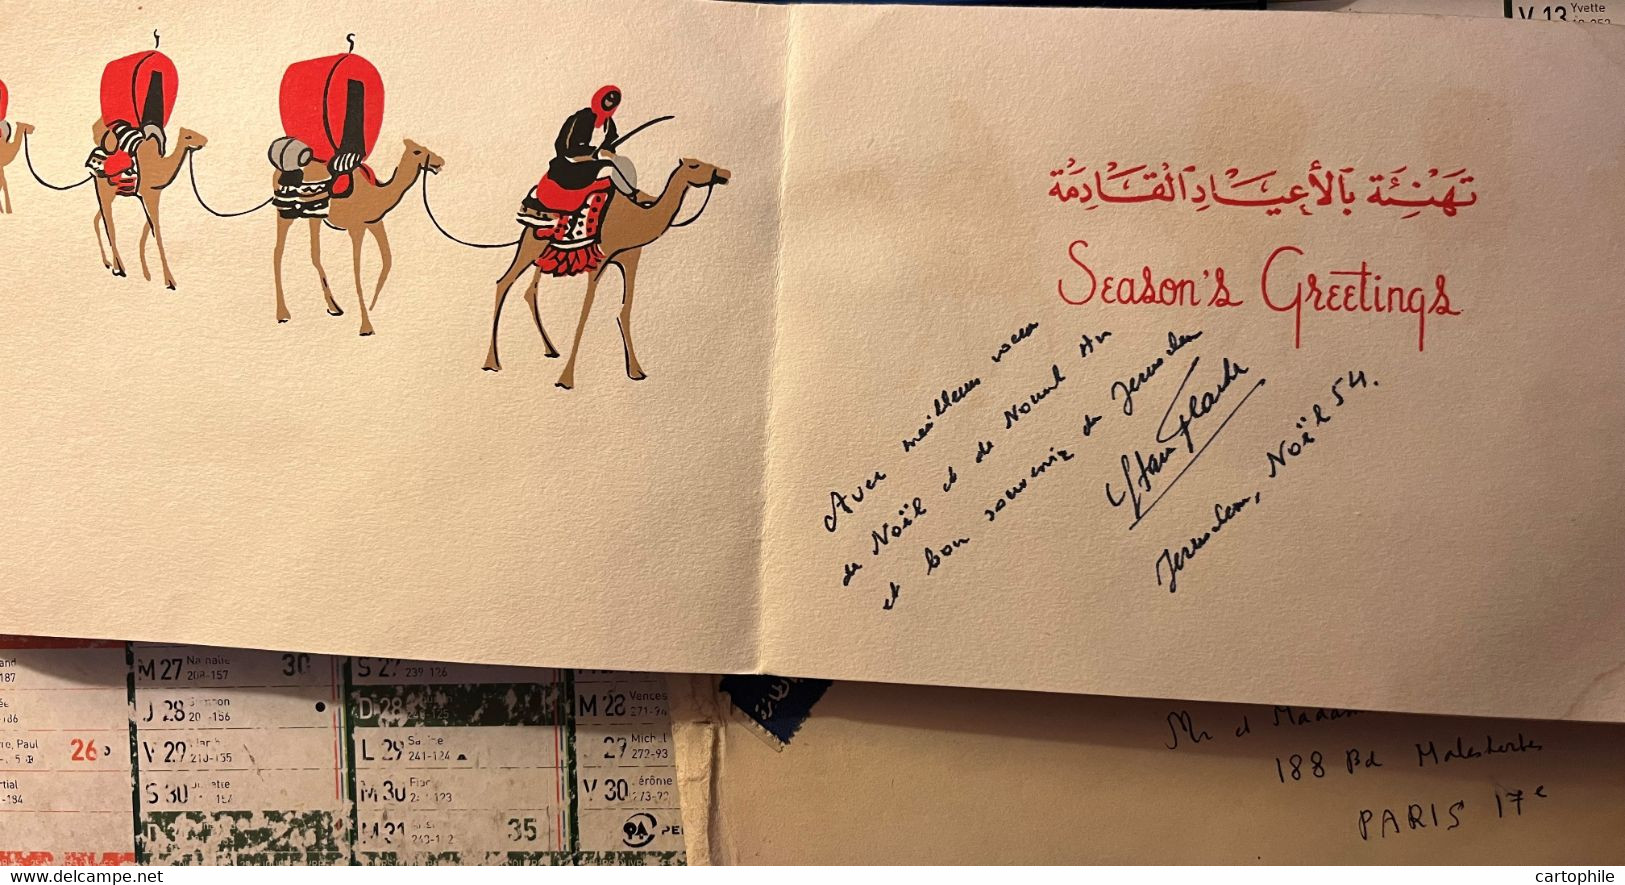 V 13 Yvette
تهنئة بالأعياد القادمة
Season's Greetings
Avec meilleurs voeux
de Noël et de Nouvel An
et bon souvenir de Jerusalem
Jerusalem, Noël 54.
Mr et Madam
188 Bd Malesherbes
PARIS 17e
187
-186
, Paul 26
-184
M 27 30
208-157
J 28
-156
V 29
S 30
S 27
239-126
D 28
L 29
241-124
M 30
M 31 35
M 28 Vences
271-94
272-93
V 30 Jérôme
www.delcampe.net
cartophile